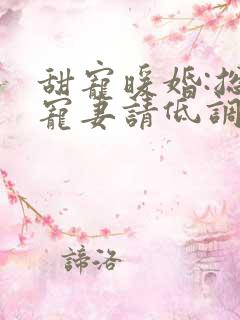 甜寵暖婚:總
寵妻請低調
諦洛